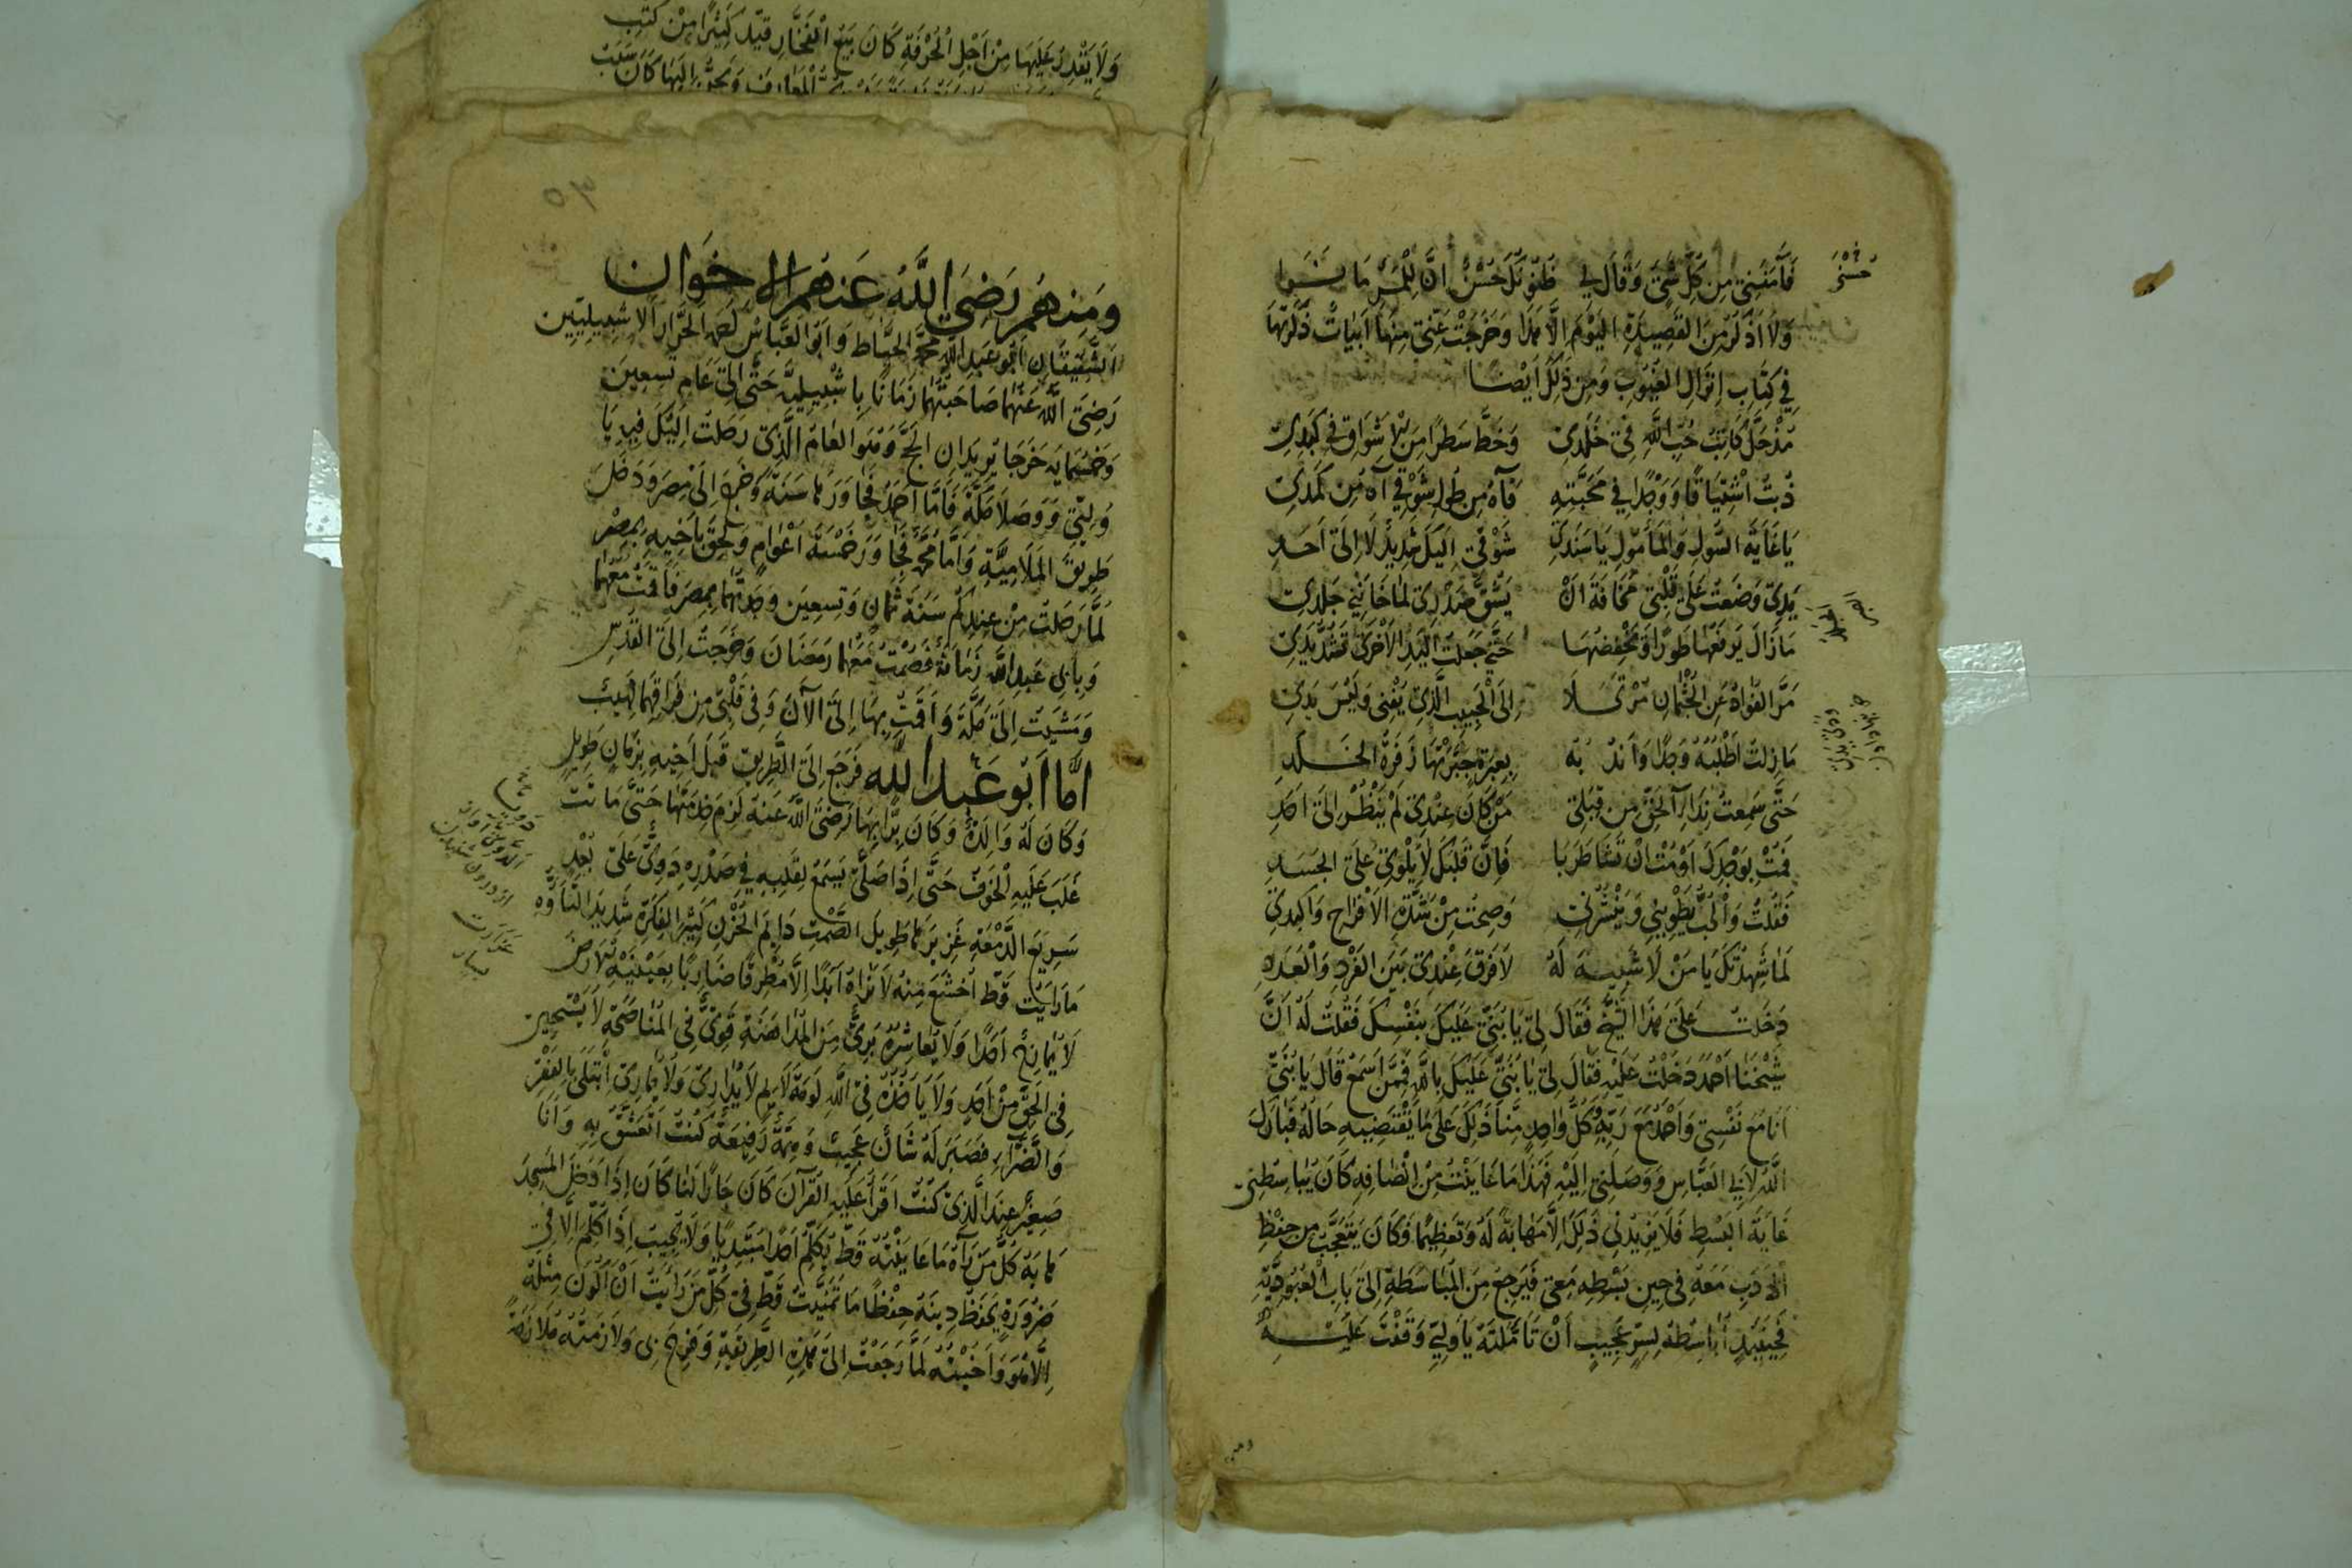 فَآمَنَنِي مِن كُلِّ شَيْ وَقَالَ لِي ظَنُّوتَكَ حَسَنٌ اِنَّ لِلْمَرْءِ مَا
وَلَا اَذْكُرُ مِنَ القَصِيدَةِ اليَوْمَ اِلَّا هَذَا وَخَرَجَتْ عَنِّي مِنْهَا اَبْيَاتٌ ذَكَرْتُهَا
فِي كِتَابِ اِنْزَالِ الغُيُوبِ وَمِن ذَلِكَ اَيْضًا
مُذْ حَلَّ كَاتِبُ حُبِّ اللَّهِ فِي خَلَدِي وَخَطَّ سَطْرًا مِنَ الْاَشْوَاقِ فِي كَبِدِي
ذُبْتُ اشْتِيَاقًا وَوَجْدًا فِي مَحَبَّتِهِ فَآهُ مِن طُولِ شَوْقِي آهُ مِن كَمَدِي
يَا غَايَةَ السُّولِ وَالمَأْمُولِ يَا سَنَدِي شَوْقِي اِلَيْكَ شَدِيدٌ لَا اِلَى اَحَدِ
يَدِي وَضَعْتُ عَلَى قَلْبِي مَخَافَةَ اَنْ يَشُقَّ صَدْرِي لَمَّا خَانَنِي جَلَدِي
مَا زَالَ يَرْفَعُهَا طَوْرًا وَيَخْفِضُهَا حَتَّى جَعَلْتُ اليَدَ الْاُخْرَى تَشُدُّ يَدِي
مَرَّ الفُوَادُ عَنِ الجُثْمَانِ مُرْتَحِلًا اِلَى الْحَبِيبِ الَّذِي يَفْنَى وَلَيْسَ يَدِي
مَا زِلْتُ اَطْلُبُهُ وَجْدًا وَاَنْدُبُهُ بِعَبْرَةٍ حَيَّرَتْهَا زَفْرَةُ الخَلَدِ
حَتَّى سَمِعْتُ نِدَاءَ الحَقِّ مِن قِبَلِي مَنْ كَانَ عِنْدِي لَمْ يَنْظُرْ اِلَى اَحَدِ
فَمُتْ بِوَجْدِكَ اَوْ مُتْ اِنْ تَشَا طَرَبًا فَاِنَّ قَلْبَكَ لَا يَلْوِي عَلَى الجَسَدِ
فَقُلْتُ وَالْحُبُّ يَطْوِينِي وَيَنْشُرُنِي وَصِحْتُ مِنْ شِدَّةِ الْاَفْرَاحِ وَاكَبِدِي
لَمَّا شَهِدْتُكَ يَا مَنْ لَا شَبِيهَ لَهُ لَا فَرْقَ عِنْدِي بَيْنَ الفَرْدِ وَالْعَدَدِ
دَخَلْتُ عَلَى هَذَا الشَّيْخِ فَقَالَ لِي يَا بُنَيَّ عَلَيْكَ بِنَفْسِكَ فَقُلْتُ لَهُ اَنَّ
شَيْخَنَا اَحْمَدَ دَخَلْتُ عَلَيْهِ فَقَالَ لِي يَا بُنَيَّ عَلَيْكَ بِاللَّهِ فَمِمَّنْ اَسْمَعُ قَالَ يَا بُنَيَّ
اَنَا مَعَ نَفْسِي وَاَحْمَدُ مَعَ رَبِّهِ وَكُلُّ وَاحِدٍ مِنَّا دَلَّكَ عَلَى مَا يَقْتَضِيهِ حَالُهُ فَبَارَكَ
اللَّهُ لِاَبِي العَبَّاسِ وَوَصَلَنِي اِلَيْهِ فَهَذَا مَا عَايَنْتُ مِنْ اِنْصَافِهِ كَانَ يُبَاسِطُنِي
غَايَةَ البَسْطِ فَلَا يَزِيدُنِي ذَلِكَ اِلَّا مَهَابَةً لَهُ وَتَعْظِيمًا فَكَانَ يَتَعَجَّبُ مِن حِفْظِ
الْاَدَبِ مَعَهُ فِي حِينِ بَسْطِهِ مَعِي فَيَرْجِعُ مِنَ المُبَاسَطَةِ اِلَى بَابِ الْعُبُودِيَّةِ
فَحِينَئِذٍ اُبَاسِطُهُ لِسِرٍّ عَجِيبٍ اَنْ تَأَمَّلْتَهُ يَا وَلِيِّي وَقَفْتَ عَلَيْهِ
وَلَا يَقْدِرُ عَلَيْهَا مِنْ اَجْلِ الْحُرْفَةِ كَانَ يَبِيعُ الْفَخَّارَ قَيَّدَ كَثِيرًا مِنْ كُتُبِ
وَمِنْهُمْ رَضِيَ اللَّهُ عَنْهُمُ الْاِخْوَانِ
الشَّقِيقَانِ اَبُو عَبْدِ اللَّهِ مُحَمَّدُ الخَيَّاطُ وَاَبُو العَبَّاسِ اَحْمَدُ الحَرَّارُ الْاِشْبِيلِيِّينِ
رَضِيَ اللَّهُ عَنْهُمَا صَاحَبْتُهُمَا زَمَانًا بِاِشْبِيلِيَّةَ حَتَّى اِلَى عَامِ تِسْعِينَ
وَخَمْسِمَايَةٍ خَرَجَا يُرِيدَانِ الحَجَّ وَهُوَ العَامُ الَّذِي رَحَلْتُ اِلَيْكَ فِيهِ يَا
وَلِيِّي وَوَصَلَا مَكَّةَ فَاَمَّا اَحْمَدُ فَجَاوَرَ بِهَا سَنَةً وَخَرَجَ اِلَى مِصْرَ وَدَخَلَ
طَرِيقَ المَلَامِيَّةِ وَاَمَّا مُحَمَّدٌ فَجَاوَرَ خَمْسَةَ اَعْوَامٍ وَلَحِقَ بِاَخِيهِ بِمِصْرَ
لَمَّا رَحَلْتُ مِنْ عِنْدِكُمْ سَنَةَ ثَمَانٍ وَتِسْعِينَ وَجَدْتُهُمَا بِمِصْرَ فَاَقَمْتُ مَعَهُمَا
وَبِاَبِي عَبْدِ اللَّهِ زَمَانَةٌ فَصُمْتُ مَعَهُمَا رَمَضَانَ وَخَرَجْتُ اِلَى القُدْسِ
وَمَشَيْتُ اِلَى مَكَّةَ وَاَقَمْتُ بِهَا اِلَى الْآنَ وَفِي قَلْبِي مِن فِرَاقِهِمَا لَهِيبٌ
اَمَّا اَبُو عَبْدِ اللَّهِ فَرَجَعَ اِلَى الطَّرِيقِ قَبْلَ اَخِيهِ بِزَمَانٍ طَوِيلٍ
وَكَانَ لَهُ وَالِدَةٌ وَكَانَ بَرًّا بِهَا رَضِيَ اللَّهُ عَنْهُ لَزِمَ خِدْمَتَهَا حَتَّى مَاتَتْ
غَلَبَ عَلَيْهِ الْخَوْفُ حَتَّى اِذَا صَلَّى يُسْمَعُ لِقَلْبِهِ فِي صَدْرِهِ دَوِيٌّ عَلَى بُعْدٍ
سَرِيعَ الدَّمْعَةِ غَزِيرَهَا طَوِيلَ الصَّمْتِ دَايِمَ الحُزْنِ كَثِيرَ الفِكْرَةِ شَدِيدَ التَّأَوُّهِ
مَا رَايْتُ قَطُّ اَخْشَعَ مِنْهُ لَا تَرَاهُ اَبَدًا اِلَّا مُطْرِقًا ضَارِبًا بِعَيْنَيْهِ لِلْاَرْضِ
لَا يُمَازِحُ اَحَدًا وَلَا يُعَاشِرُهُ بَرِيٌّ مِنَ المُدَاهَنَةِ قَوِيٌّ فِي المُنَاصَحَةِ لَا يَسْتَحِي
فِي الحَقِّ مِنْ اَحَدٍ وَلَا يَأْخُذُهُ فِي اللَّهِ لَوْمَةُ لَايِمٍ لَا يُدَارِي وَلَا يُمَارِي ابْتُلِيَ بِالفَقْرِ
وَالضَّرَّاءِ فَصَبَرَ لَهُ شَأْنٌ عَجِيبٌ وَهِمَّةٌ رَفِيعَةٌ كُنْتُ اَتَعَشَّقُ بِهِ وَاَنَا
صَغِيرٌ عِنْدَ الَّذِي كُنْتُ اَقْرَأُ عَلَيْهِ القُرْآنَ كَانَ جَارًا لَنَا كَانَ اِذَا دَخَلَ المَسْجِدَ
هَابَهُ كُلُّ مَنْ رَآهُ مَا عَايَنْتُهُ قَطُّ يُكَلِّمُ اَحَدًا مُبْتَدِيًا وَلَا يُجِيبُ اِذَا كُلِّمَ اِلَّا فِي
ضَرُورَةٍ يَحْفَظُ دِينَهُ حِفْظًا مَا تَمَنَّيْتُ قَطُّ فِي كُلِّ مَنْ رَايْتُ اَنْ اَكُونَ مِثْلَهُ
اِلَّا هُوَ وَاَحْبَبْتُهُ لَمَّا رَجَعْتُ اِلَى هَذِهِ الطَّرِيقَةِ وَفَرِحَ بِي وَلَازَمْتُهُ مُلَازَمَةً